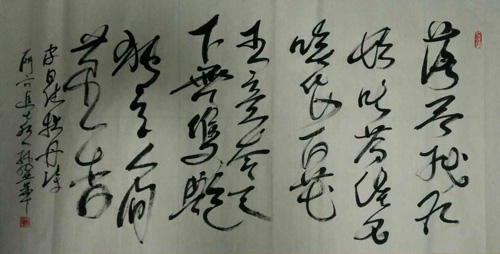 落尽残红
始吐芳佳名
唤作百花
王竞夸天
下無雙艷
独立人间
第一香
皮日休牡丹诗